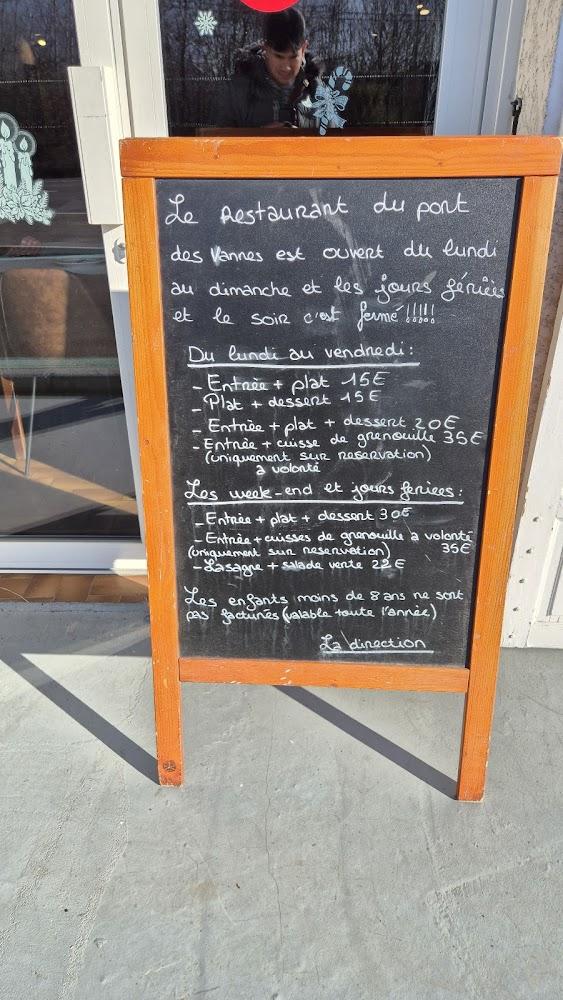 Le Restaurant du pont
des Vannes est ouvert du lundi
au dimanche et les jours fériées
et le soir c'est fermé !!!!!
Du lundi au vendredi :
- Entrée + plat 15€
- Plat + dessert 15€
- Entrée + plat + dessert 20€
- Entrée + cuisse de grenouille 35€
(uniquement sur reservation)
a volonté
Les week-end et jours feriees :
- Entrée + plat + dessert 30€
- Entrée + cuisses de grenouille a volonté
(uniquement sur reservation) 35€
- Lasagne + salade verte 22€
Les enfants moins de 8 ans ne sont
pas facturés (valable toute l'année)
La direction